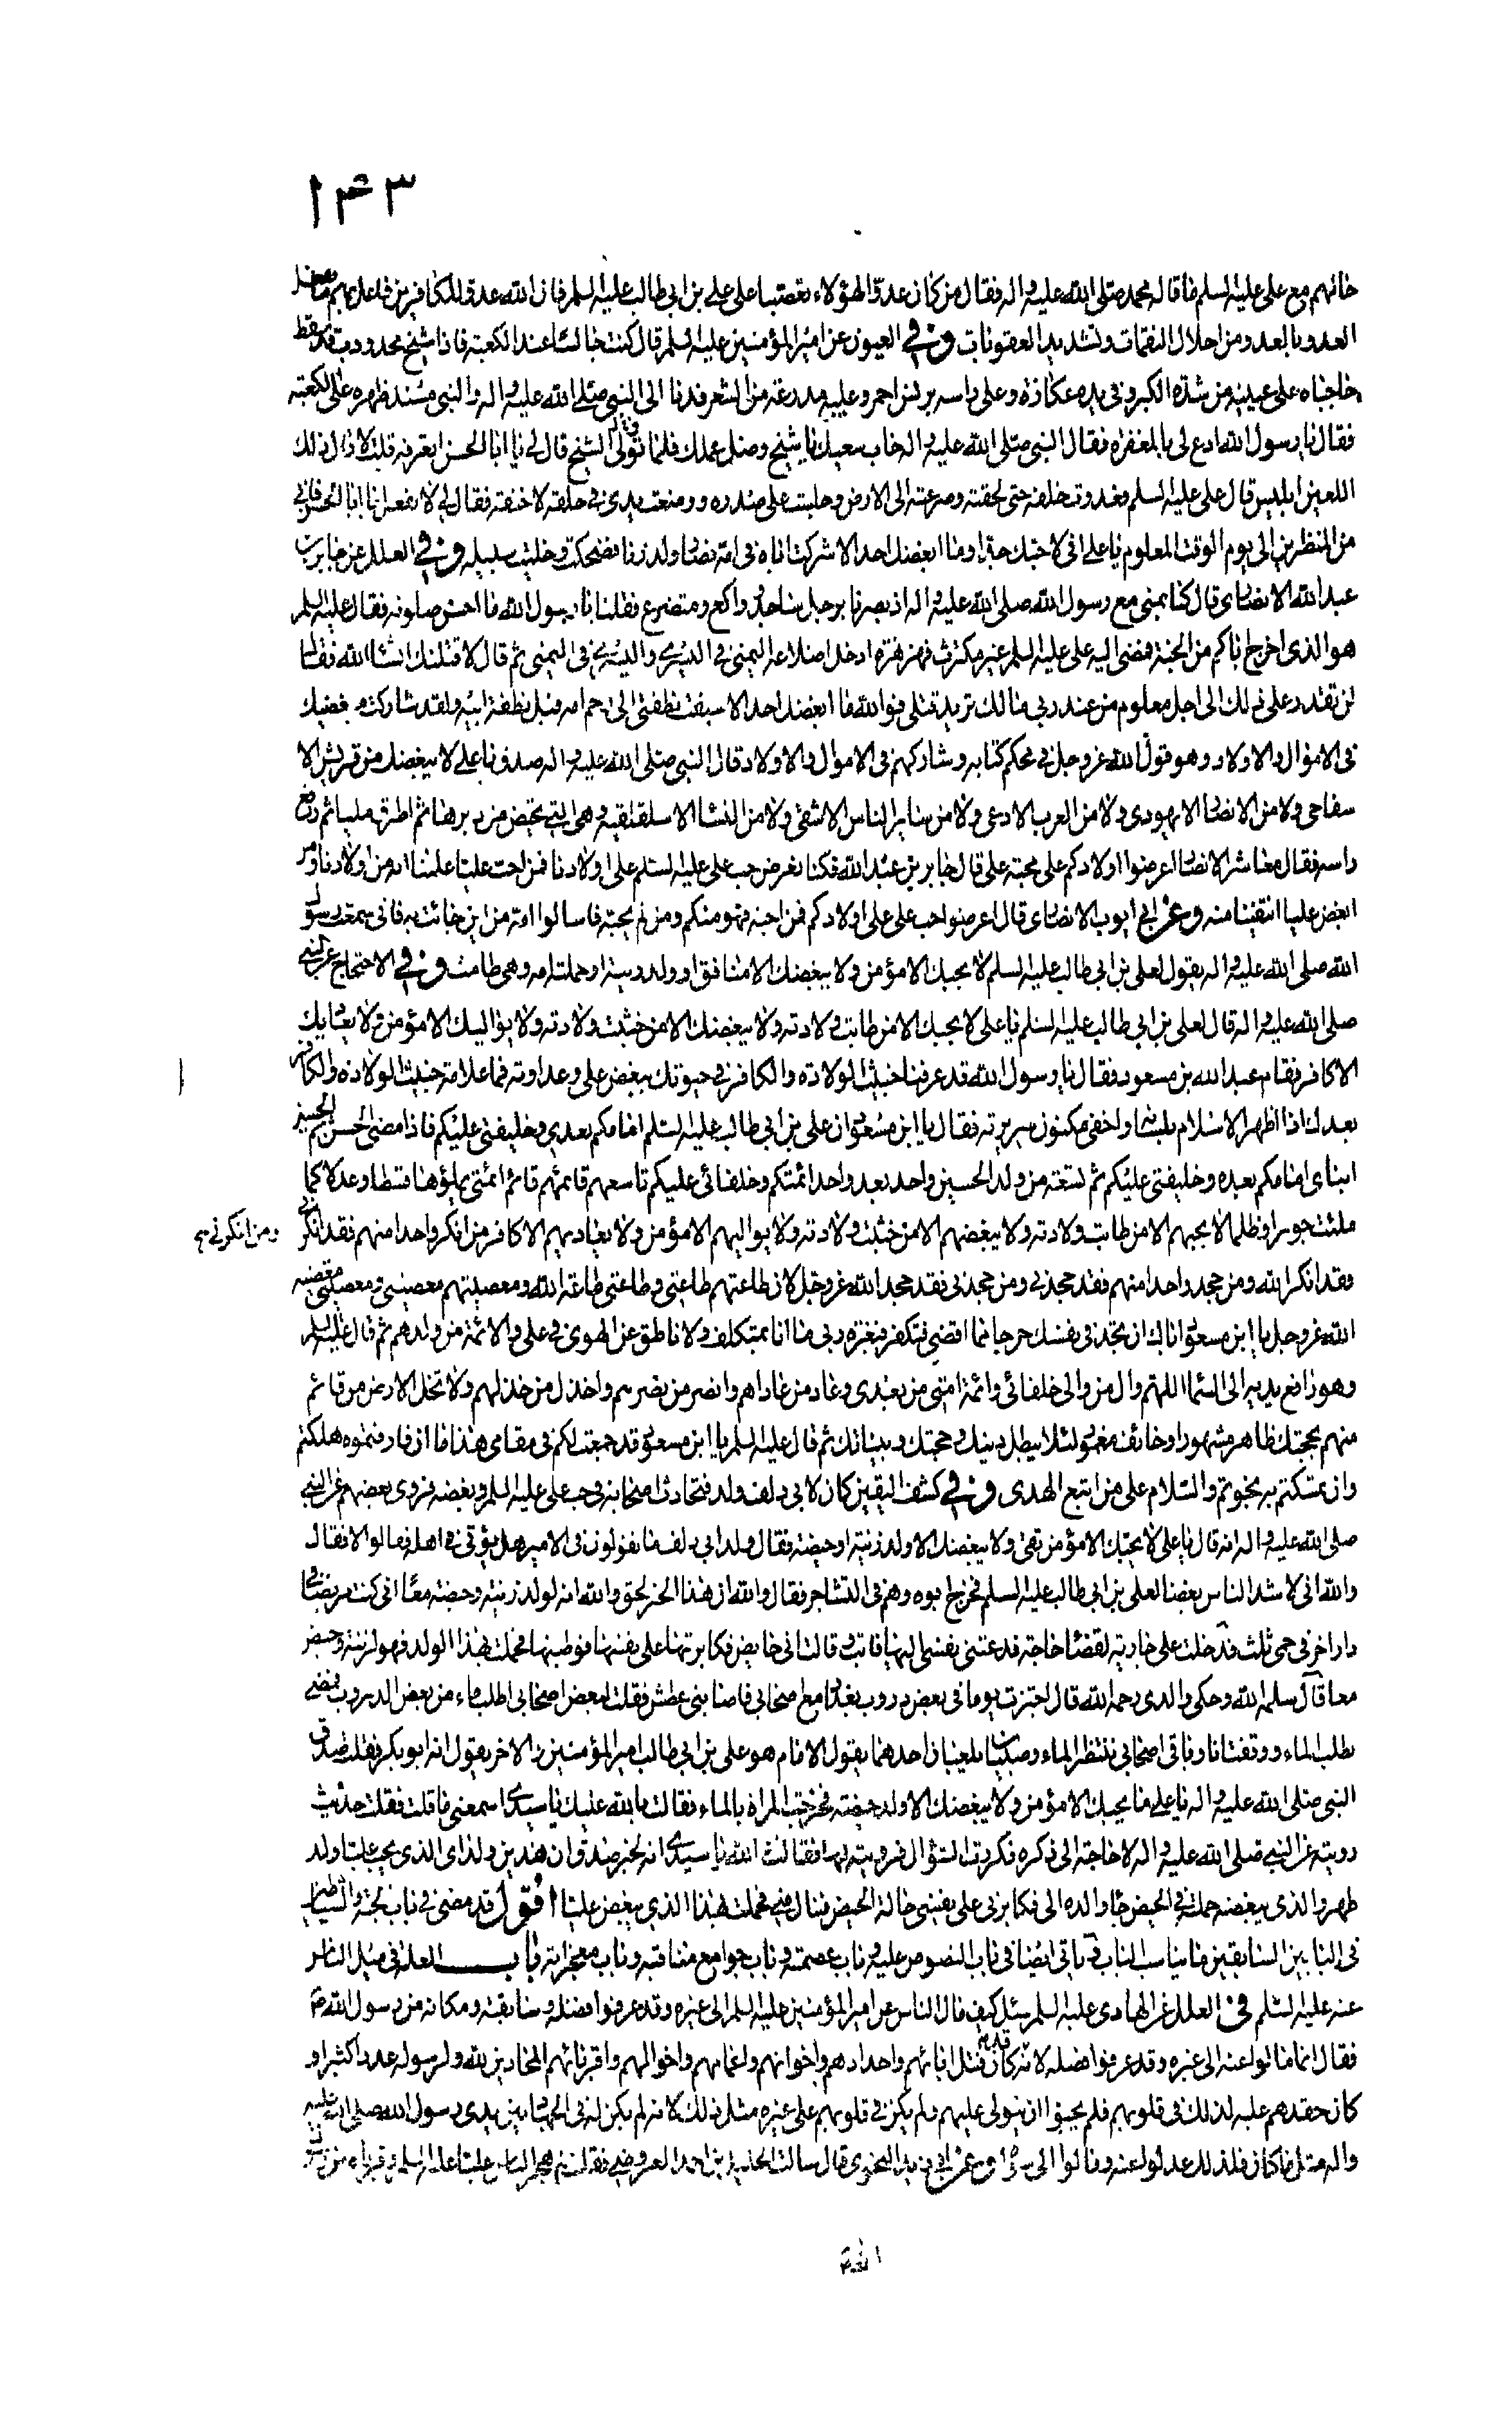 ١٤٣
خانهم مع على عليه السلم فما قاله محمد صلى الله عليه واله فقال من كان عدوا لهؤلاء تعصبا على على بن ابى طالب عليه السلم فان الله عدو للكافرين فاعل بهم ما يفعل
العدو بالعدو من احلال النقمات وتشديد العقوبات وفى العيون عن امير المؤمنين عليه السلم قال كنت جالسا عند الكعبة فاذا شيخ محدودب قد سقط
حاجباه على عينيه من شدة الكبر وفى يده عكازة وعلى راسه برنس احمر وعليه مدرعة من الشعر فدنا الى النبى صلى الله عليه واله والنبى مسند ظهره على الكعبة
فقال يا رسول الله ادع لى بالمغفرة فقال النبى صلى الله عليه واله خاب سعيك يا شيخ وضل عملك فلما تولى الشيخ قال لى يا ابا الحسن اتعرفه قلت لا قال ذلك
اللعين ابليس قال على عليه السلم فعدوت خلفه حتى لحقته وصرعته الى الارض وجلست على صدره ووضعت يدى فى حلقه لاخنقه فقال لى لا تفعل يا ابا الحسن فانى
من المنظرين الى يوم الوقت المعلوم يا على انى لاحبك جدا وما ابغضك احد الا شركت اباه فى امه فصار ولد زنا فضحكت وخليت سبيله وفى العلل عن جابر بن
عبد الله الانصارى قال كنا بمنى مع رسول الله صلى الله عليه واله اذ بصرنا برجل ساجد وراكع ومتضرع فقلنا يا رسول الله ما احسن صلوته فقال عليه السلم
هو الذى اخرج اباكم من الجنة فمضى اليه على عليه السلم غير مكترث فهزه هزة ادخل اضلاعه اليمنى فى اليسرى واليسرى فى اليمنى ثم قال لاقتلنك انشاء الله فقال
لن تقدر على ذلك الى اجل معلوم من عند ربى مالك تريد قتلى فوالله ما ابغضك احد الا سبقت نطفتى الى رحم امه قبل نطفة ابيه ولقد شاركت مبغضيك
فى الاموال والاولاد وهو قول الله عز وجل فى محكم كتابه وشاركهم فى الاموال والاولاد قال النبى صلى الله عليه واله صدق يا على لا يبغضك من قريش الا
سفاحى ولا من الانصار الا يهودى ولا من العرب الا دعى ولا من ساير الناس الا شقى ولا من النساء الا سلقلقية وهى التى تحيض من دبرها ثم اطرق مليا ثم رفع
راسه فقال معاشر الانصار اعرضوا اولادكم على محبة على قال جابر بن عبد الله فكنا نعرض حب على عليه السلم على اولادنا فمن احب عليا علمنا انه من اولادنا ومن
ابغض عليا انتفينا منه وعن ابى ايوب الانصارى قال اعرضوا حب على على اولادكم فمن احبه فهو منكم ومن لم يحبه فاسالوا امه من اين جائت به فانى سمعت رسول
الله صلى الله عليه واله يقول لعلى بن ابى طالب عليه السلم لا يحبك الا مؤمن ولا يبغضك الا منافق او ولد زنية او حملته امه وهى طامث وفى الاحتجاج عن النبى
صلى الله عليه واله قال لعلى بن ابى طالب عليه السلم يا على لا يحبك الا من طابت ولادته ولا يبغضك الا من خبثت ولادته ولا يواليك الا مؤمن ولا يعاديك
الا كافر فقام عبد الله بن مسعود فقال يا رسول الله قد عرفنا خبيث الولادة والكافر فى حيوتك ببغض على وعداوته فما علامة خبيث الولادة والكافر
بعدك اذا اظهر الاسلام بلسانه واخفى مكنون سريرته فقال يا ابن مسعود ان على بن ابى طالب عليه السلم امامكم بعدى وخليفتى عليكم فاذا مضى فالحسن ثم الحسين
ابناى امامكم بعده وخليفتى عليكم ثم تسعة من ولد الحسين واحد بعد واحد ائمتكم وخلفائى عليكم تاسعهم قائمهم قائم امتى يملؤها قسطا وعدلا كما
ملئت جورا وظلما لا يحبهم الا من طابت ولادته ولا يبغضهم الا من خبثت ولادته ولا يواليهم الا مؤمن ولا يعاديهم الا كافر من انكر واحدا منهم فقد انكرنى
ومن انكرنى
فقد انكر الله ومن جحد واحدا منهم فقد جحدنى ومن جحدنى فقد جحد الله عز وجل لان طاعتهم طاعتى وطاعتى طاعة الله ومعصيتهم معصيتى ومعصيتى معصية
الله عز وجل يا ابن مسعود اياك ان تجد فى نفسك حرجا مما اقضى فتكفر فبعزة ربى ما انا بمتكلف ولا ناطق عن الهوى فى على والائمة من ولدهم ثم قال عليه السلم
وهو رافع يديه الى السماء اللهم وال من والى خلفائى وائمة امتى من بعدى وعاد من عاداهم وانصر من نصرهم واخذل من خذلهم ولا تخل الارض من قائم
منهم بحجتك ظاهر مشهور او خائف مغمور لئلا يبطل دينك وحجتك وبيناتك ثم قال عليه السلم يا ابن مسعود قد جمعت لكم فى مقامى هذا ما ان فارقتموه هلكتم
وان تمسكتم به نجوتم والسلام على من اتبع الهدى وفى كشف اليقين كان لابى دلف ولد فتحادث اصحابه فى حب على عليه السلم وبغضه فروى بعضهم عن النبى
صلى الله عليه واله انه قال يا على لا يحبك الا مؤمن تقى ولا يبغضك الا ولد زنية او حيضة فقال ولد ابى دلف ما تقولون فى الامير هل يؤتى فى اهله فقالوا لا فقال
والله انى لاشد الناس بغضا لعلى بن ابى طالب عليه السلم فخرج ابوه وهم فى التشاجر فقال والله ان هذا الخبر لحق والله انه لولد زنية وحيضة معا انى كنت مريضا فى
دار اخى فى حمى ثلث فدخلت على جارية لقضاء حاجة فدعتنى نفسى اليها فابت وقالت انى حايض فكابرتها على نفسها فوطيتها فحملت بهذا الولد فهو لزنية وحيض
معا قال سلمه الله وحكى والدى رحمه الله قال اجتزت يوما فى بعض دروب بغداد مع اصحابى فاصابنى عطش فقلت لبعض اصحابى اطلب ماء من بعض الدروب فمضى
يطلب الماء ووقفت انا وباقى اصحابى ننتظر الماء وصبيان يلعبان احدهما يقول الامام هو على بن ابى طالب امير المؤمنين والاخر يقول انه ابو بكر فقلت صدق
النبى صلى الله عليه واله يا على ما يحبك الا مؤمن ولا يبغضك الا ولد حيضة فخرجت المراة بالماء فقالت بالله عليك يا سيدى اسمعنى ما قلت فقلت حديث
رويته عن النبى صلى الله عليه واله لا حاجة الى ذكره فكررت السؤال فرويته لها فقالت والله يا سيدى انه لخبر صدق وان هذين ولداى الذى يحب عليا ولد
طهر والذى يبغضه حملته فى الحيض جاء والده الى فكابرنى على نفسى حالة الحيض فنال منى فحملت بهذا الذى يبغض عليا اقول قد مضى فى باب
فى البابين السابقين ما يناسب الباب وياتى ايضا فى باب النصوص عليه وباب عصمته وباب جوامع مناقبه وباب معجزاته باب العلة فى ميل الناس
عنه عليه السلم فى العلل عن الهادى عليه السلم سئل كيف مال الناس عن امير المؤمنين عليه السلم الى غيره وقد عرفوا فضله وسابقته ومكانه من رسول الله ص
فقال انما مالوا عنه الى غيره وقد عرفوا فضله لانه كان قد قتل ابائهم واجدادهم واخوانهم واعمامهم واخوالهم واقربائهم المحادين لله ولرسوله عددا كثيرا و
كان حقدهم عليه لذلك فى قلوبهم فلم يحبوا ان يتولى عليهم ولم يكن فى قلوبهم على غيره مثل ذلك لانه لم يكن له فى الجهاد بين يدى رسول الله صلى الله عليه
واله مثل ما كان فلذلك عدلوا عنه ومالوا الى سواه وعن ابى زيد النحوى قال سالت الخليل بن احمد العروضى فقلت لم هجر الناس عليا عليه السلم وقرباه من رسول
الله ص